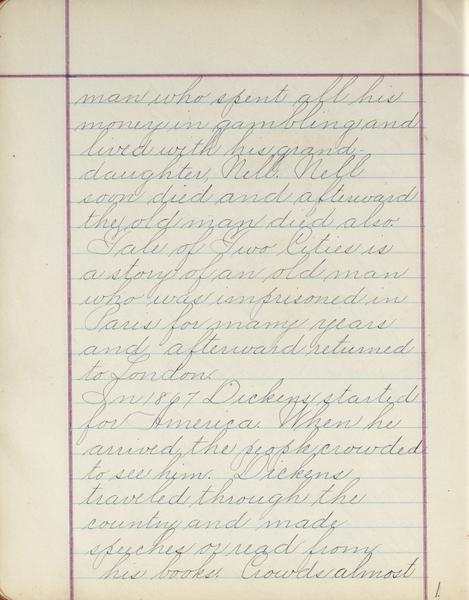 man who spent all his
money in gambling and
lived with his grand-
daughter, Nell. Nell
soon died and afterward
the old man died also.
Tale of Two Cities is
a story of an old man
who was imprisoned in
Paris for many years
and afterward returned
to London.
In 1867 Dickens started
for America. When he
arrived the people crowded
to see him. Dickens
traveled through the
country and made
speeches or read from
his books. Crowds almost
1.